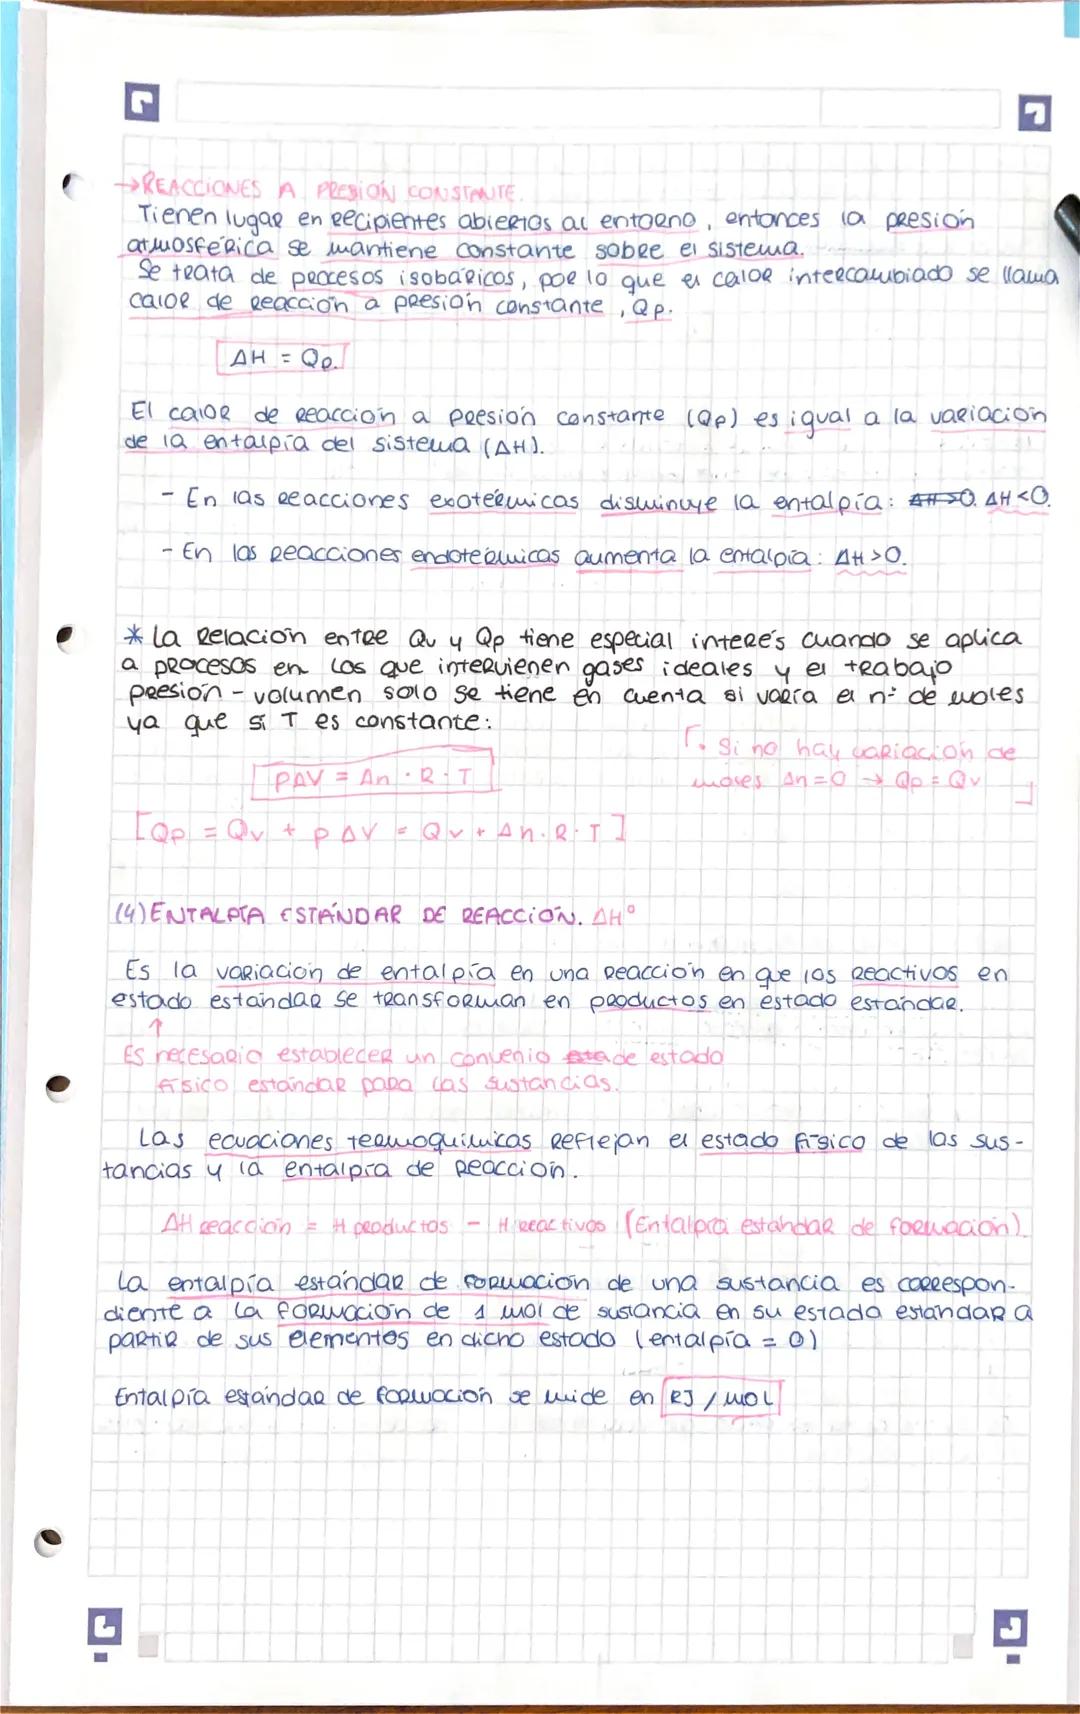 →REACCIONES A PRESIÓN CONSTANTE.
Tienen lugar en recipientes abiertos al entorno, entonces la presión
atmosférica se mantiene constante sobre el sistema.
Se trata de procesos isobáricos, por lo que el calor intercambiado se llama
calor de reacción a presión constante, Qp.
ΔH = Qp.
El calor de reacción a presión constante (Qp) es igual a la variación
de la entalpía del sistema (ΔH).
- En las reacciones exotérmicas disminuye la entalpía: ΔH>0. ΔH<0.
- En las reacciones endotérmicas aumenta la entalpía: ΔH>0.
* La relación entre Qv y Qp tiene especial interés cuando se aplica
a procesos en los que intervienen gases ideales y el trabajo
presión - volumen solo se tiene en cuenta si varía el nº de moles
ya que si T es constante:
[. Si no hay variación de
moles Δn=0 → Qp = Qv ]
PΔV = Δn · R · T
[Qp = Qv + p ΔV = Qv + Δn · R · T]
(4) ENTALPÍA ESTÁNDAR DE REACCIÓN. ΔH°
Es la variación de entalpía en una reacción en que los reactivos en
estado estándar se transforman en productos en estado estándar.
↑
Es necesario establecer un convenio de estado
físico estándar para las sustancias.
Las ecuaciones termoquímicas reflejan el estado físico de las sus-
tancias y la entalpía de reacción.
ΔH reacción = H productos - H reactivos (Entalpía estándar de formación).
La entalpía estándar de formación de una sustancia es correspon-
diente a la formación de 1 mol de sustancia en su estado estándar a
partir de sus elementos en dicho estado (entalpía = 0)
Entalpía estándar de formación se mide en KJ / mol